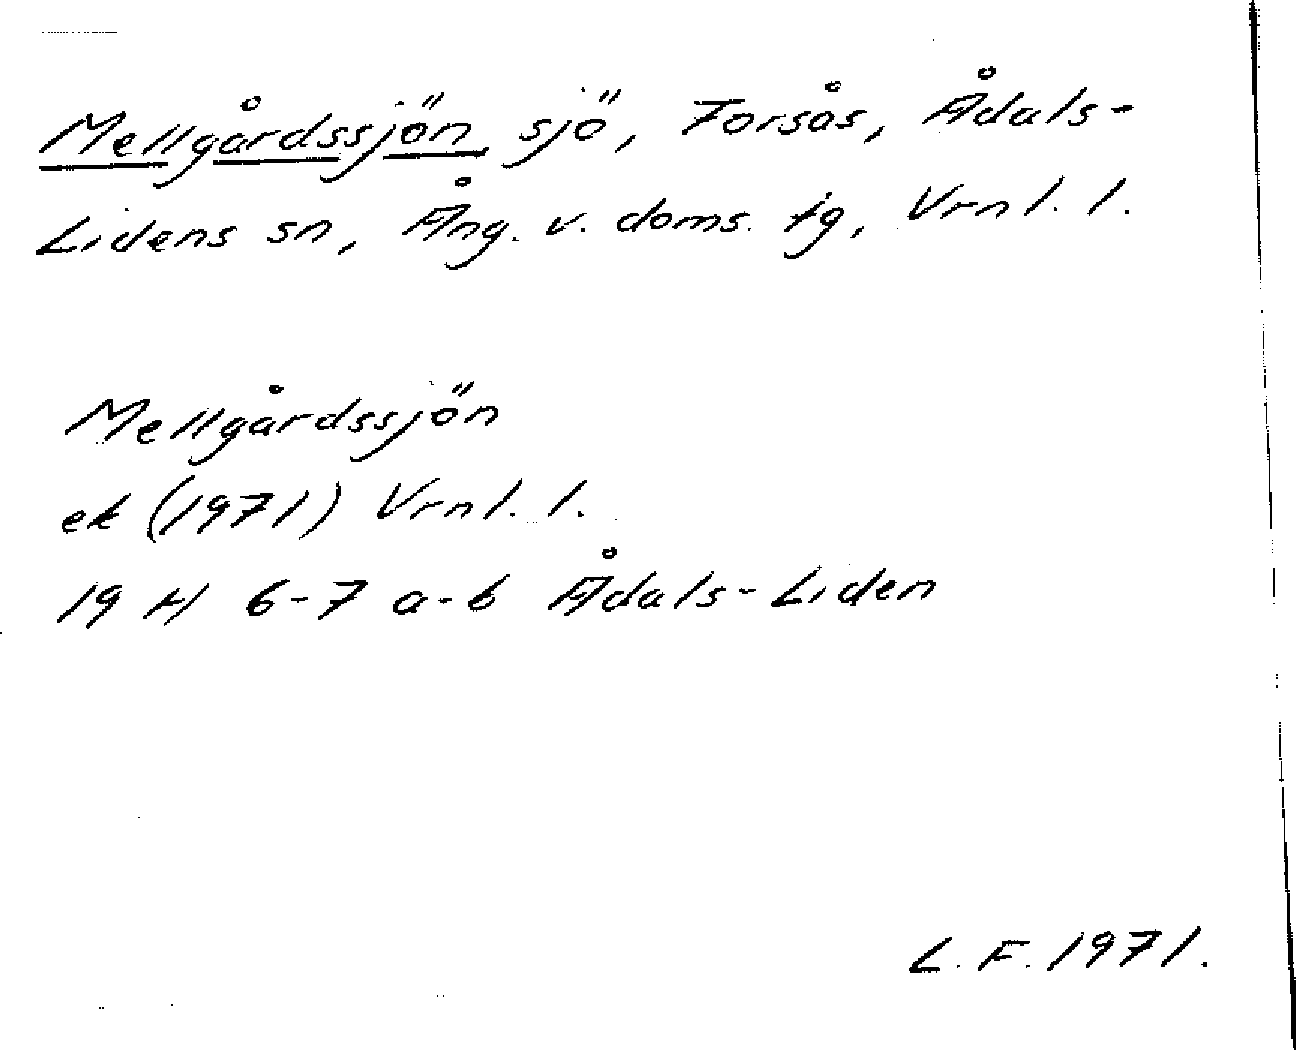 Mellgårdssjön, sjö, Forsås, Ådals-
Lidens sn, Ång. v. doms. tg, Vrnl. l.
Mellgårdssjön
ek (1971) Vrnl. l.
19 H 6-7 a-b Ådals-Liden
L. F. 1971.